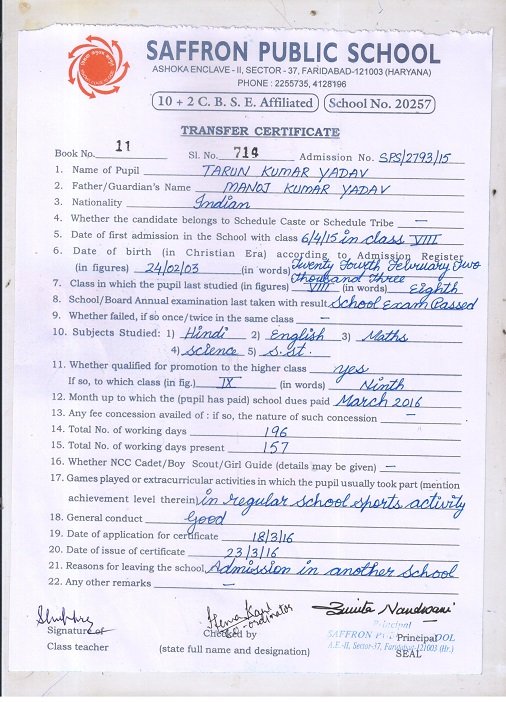 SAFFRON PUBLIC SCHOOL
ASHOKA ENCLAVE - II, SECTOR - 37, FARIDABAD-121003 (HARYANA)
PHONE : 2255735, 4128196
10 + 2 C. B. S. E. Affiliated School No. 20257
TRANSFER CERTIFICATE
Book No. 11 Sl. No. 714 Admission No. SPS/2793/15
1. Name of Pupil TARUN KUMAR YADAV
2. Father/Guardian's Name MANOJ KUMAR YADAV
3. Nationality Indian
4. Whether the candidate belongs to Schedule Caste or Schedule Tribe —
5. Date of first admission in the School with class 6/4/15 in class VIII
6. Date of birth (in Christian Era) according to Admission Register
(in figures) 24/02/03 (in words) Twenty Fourth February Two
Thousand Three
7. Class in which the pupil last studied (in figures) VIII (in words) Eighth
8. School/Board Annual examination last taken with result School Exam Passed
9. Whether failed, if so once/twice in the same class —
10. Subjects Studied: 1) Hindi 2) English 3) Maths
4) Science 5) S.St.
11. Whether qualified for promotion to the higher class yes
If so, to which class (in fig.) IX (in words) Ninth
12. Month up to which the (pupil has paid) school dues paid March 2016
13. Any fee concession availed of : if so, the nature of such concession —
14. Total No. of working days 196
15. Total No. of working days present 157
16. Whether NCC Cadet/Boy Scout/Girl Guide (details may be given) —
17. Games played or extracurricular activities in which the pupil usually took part (mention
achievement level therein) in regular school sports activity
18. General conduct Good
19. Date of application for certificate 18/3/16
20. Date of issue of certificate 23/3/16
21. Reasons for leaving the school Admission in another School
22. Any other remarks —
Co-ordinator
Sunita Nandwani
Principal
Signature of Checked by SAFFRON PUBLIC SCHOOL Principal
Class teacher (state full name and designation) A.E.-II, Sector-37, Faridabad-121003 (Hr.)
SEAL